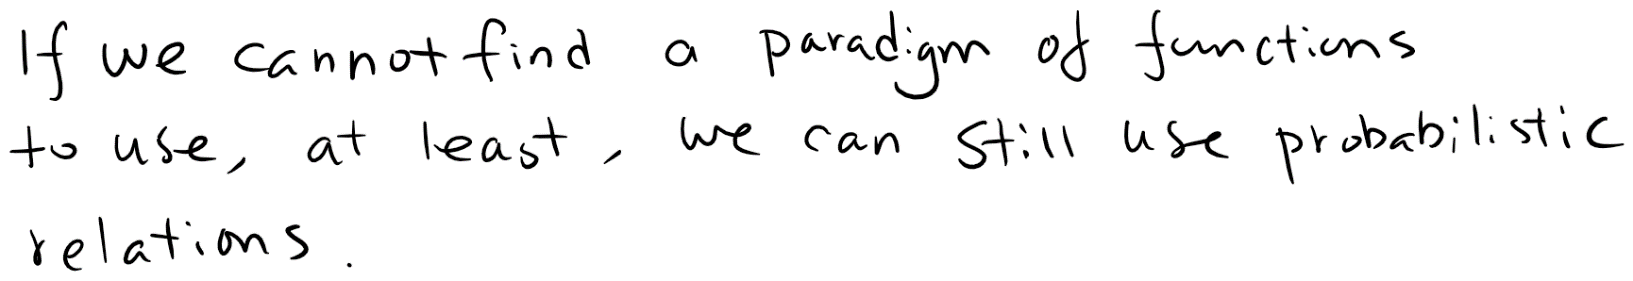 If we cannot find a paradigm of functions
to use, at least, we can still use probabilistic
relations.